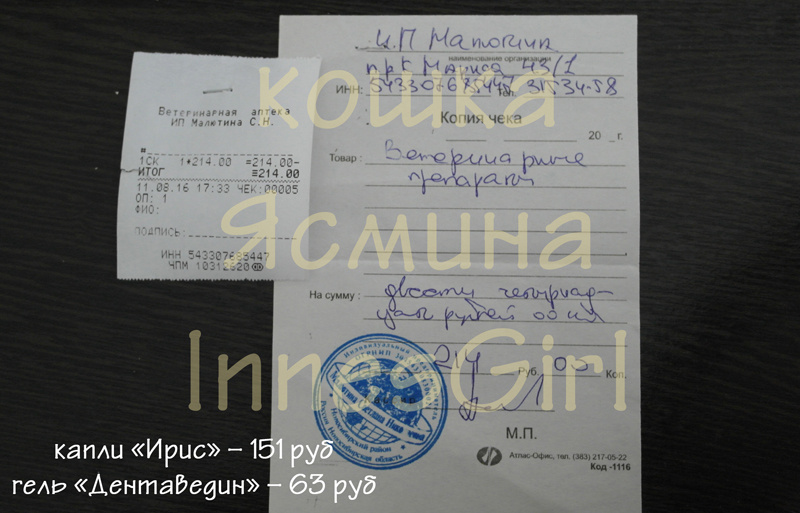 Ветеринарная аптека
ИП Малютина С.Н.
#
1СК 1*214.00 =214.00-
ИТОГ ≡214.00
11.08.16 17:33 ЧЕК:00005
ОП: 1
ФИО:
ПОДПИСЬ:
ИНН 543307685447
ЧПМ 10312820
наименование организации
пр К Маркса 43/1
ИНН: Тел. 31534-58
Копия чека
20 г.
Товар: Ветеринарные
препараты
На сумму: двести четырнад-
цать рублей 00 коп
214 Руб. 00 Коп.
М.П.
Атлас-Офис, тел. (383) 217-05-22
Код -1116
Новосибирский район
Россия Новосибирская область
кошка
Ясмина
Innes Girl
капли «Ирис» – 151 руб
гель «ДентаВедин» – 63 руб